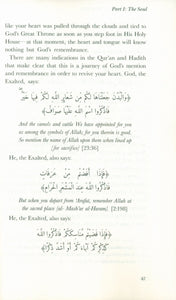 Part I: The Soul
like your heart was pulled through the clouds and tied to
God's Great Throne as soon as you step foot in His Holy
House—at that moment, the heart and tongue will know
nothing but God's remembrance.
There are many indications in the Qur'an and Hadith
that make clear that this is a journey of God's mention
and remembrance in order to revive your heart. God, the
Exalted, says:
﴿ وَالْبُدْنَ جَعَلْنَاهَا لَكُم مِّن شَعَائِرِ اللَّهِ لَكُمْ فِيهَا خَيْرٌ
فَاذْكُرُوا اسْمَ اللَّهِ عَلَيْهَا صَوَافَّ ﴾
And the camels and cattle We have appointed for you
to among the symbols of Allah; for you therein is good.
So mention the name of Allah upon them when lined up
[for sacrifice] [23:36]
He, the Exalted, also says:
﴿ فَإِذَا أَفَضْتُم مِّنْ عَرَفَاتٍ
فَاذْكُرُوا اللَّهَ عِندَ الْمَشْعَرِ الْحَرَامِ ﴾
But when you depart from 'Arafat, remember Allah at
the sacred place [al- Mash'ar al-Haram]. [2:198]
He, the Exalted, also says:
﴿ فَإِذَا قَضَيْتُم مَّنَاسِكَكُمْ فَاذْكُرُوا اللَّهَ
كَذِكْرِكُمْ آبَاءَكُمْ أَوْ أَشَدَّ ذِكْرًا ﴾